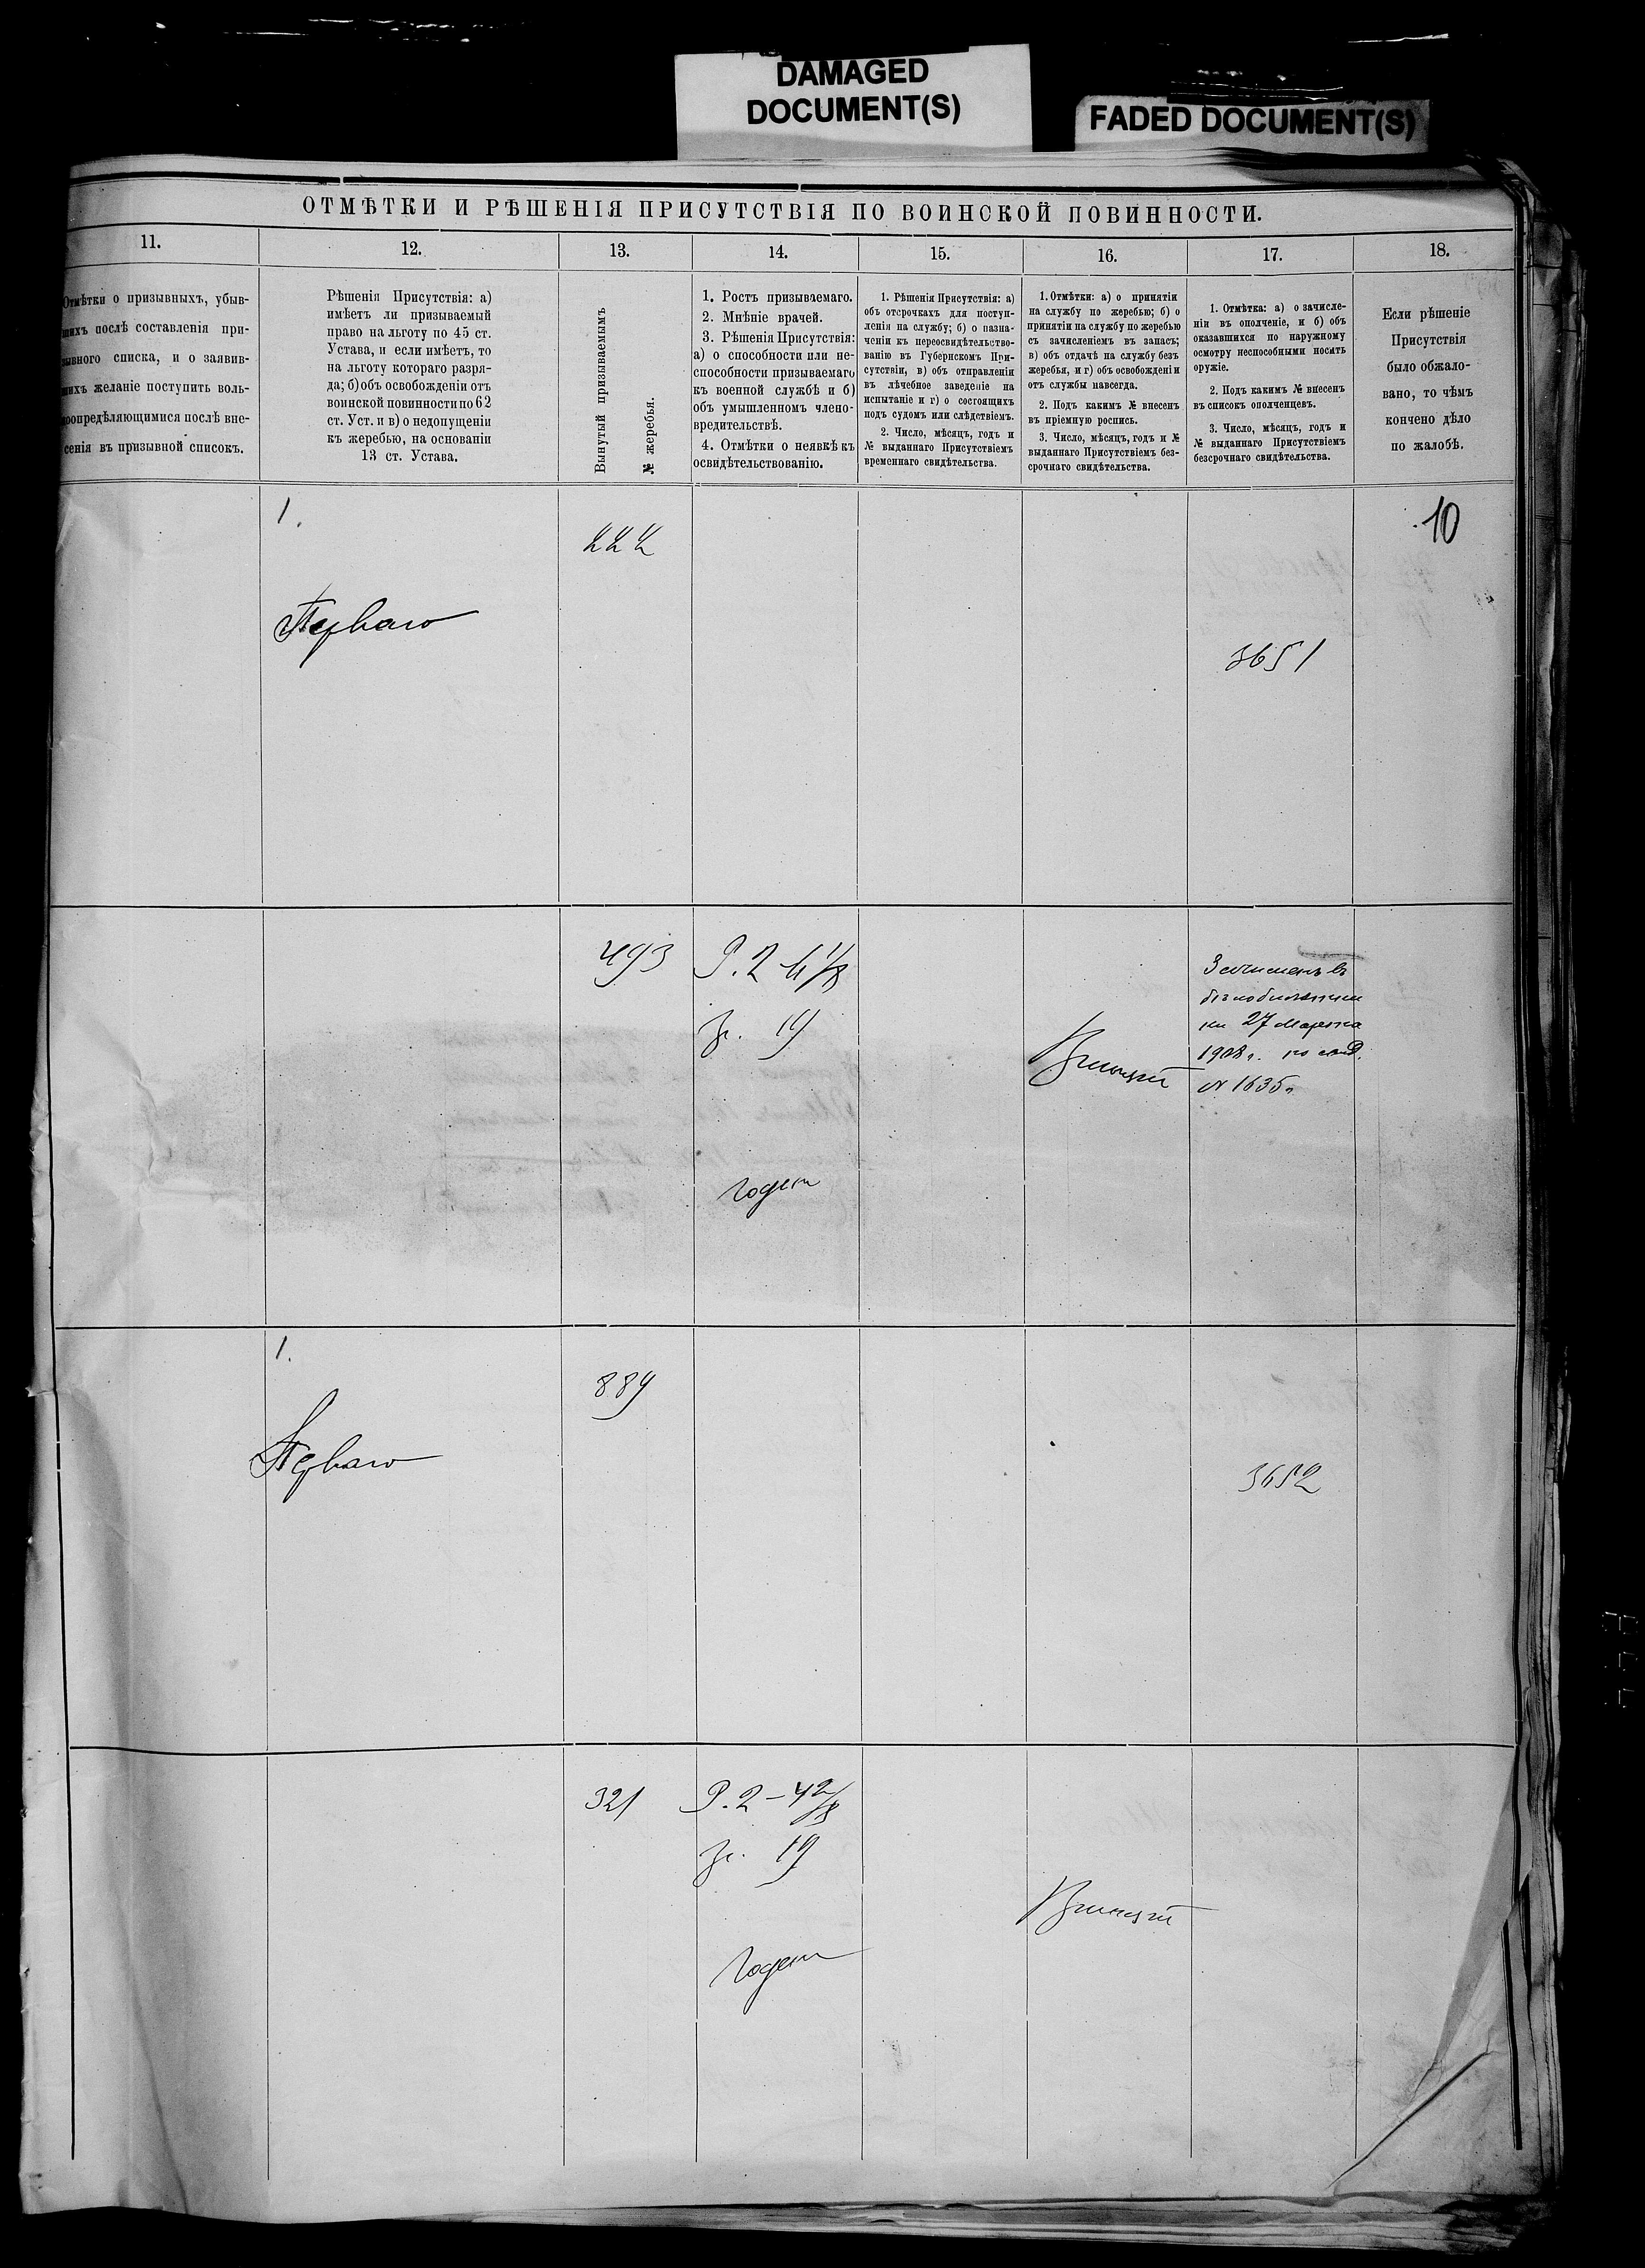 DAMAGED
DOCUMENT(S)
FADED DOCUMENT(S)
ОТМѢТКИ И РѢШЕНІЯ ПРИСУТСТВІЯ ПО ВОИНСКОЙ ПОВИННОСТИ.
11.
Отмѣтки о призывныхъ, убыв-
шихъ послѣ составленія при-
зывного списка, и о заявив-
шихъ желаніе поступить воль-
ноопредѣляющимися послѣ вне-
сенія въ призывной списокъ.
12.
Рѣшенія Присутствія: а)
имѣетъ ли призываемый
право на льготу по 45 ст.
Устава, и если имѣетъ, то
на льготу котораго разря-
да; б) объ освобожденіи отъ
воинской повинности по 62
ст. Уст. и в) о недопущеніи
къ жеребью, на основаніи
13 ст. Устава.
13.
Вынутый призываемымъ
№ жеребья.
14.
1. Ростъ призываемаго.
2. Мнѣніе врачей.
3. Рѣшенія Присутствія:
а) о способности или не-
способности призываемаго
къ военной службѣ и б)
объ умышленномъ члено-
вредительствѣ.
4. Отмѣтки о неявкѣ къ
освидѣтельствованію.
15.
1. Рѣшенія Присутствія: а)
объ отсрочкахъ для поступ-
ленія на службу; б) о назна-
ченіи къ переосвидѣтельство-
ванію въ Губернскомъ При-
сутствіи, в) объ отправленіи
въ лѣчебное заведеніе на
испытаніе и г) о состоящихъ
подъ судомъ или слѣдствіемъ.
2. Число, мѣсяцъ, годъ и
№ выданнаго Присутствіемъ
временнаго свидѣтельства.
16.
1. Отмѣтки: а) о принятіи
на службу по жеребью; б) о
принятіи на службу по жеребью
съ зачисленіемъ въ запасъ;
в) объ отдачѣ на службу безъ
жеребья, и г) объ освобожденіи
отъ службы навсегда.
2. Подъ какимъ № внесенъ
въ пріемную роспись.
3. Число, мѣсяцъ, годъ и №
выданнаго Присутствіемъ без-
срочнаго свидѣтельства.
17.
1. Отмѣтка: а) о зачисле-
ніи въ ополченіе, и б) объ
оказавшихся по наружному
осмотру неспособными носить
оружіе.
2. Подъ какимъ № внесенъ
въ списокъ ополченцевъ.
3. Число, мѣсяцъ, годъ и
№ выданнаго Присутствіемъ
безсрочнаго свидѣтельства.
18.
Если рѣшеніе
Присутствія
было обжало-
вано, то чѣмъ
кончено дѣло
по жалобѣ.
1.
Перваго
222
3651
10
493
Р. 2 - 4 1/8
гр. 19
годенъ
Принятъ
Зачисленъ въ
27 Марта
1908 г. по
№ 1635
1.
Перваго
889
3652
321
Р. 2 - 4 2/8
гр. 19
годенъ
Принятъ